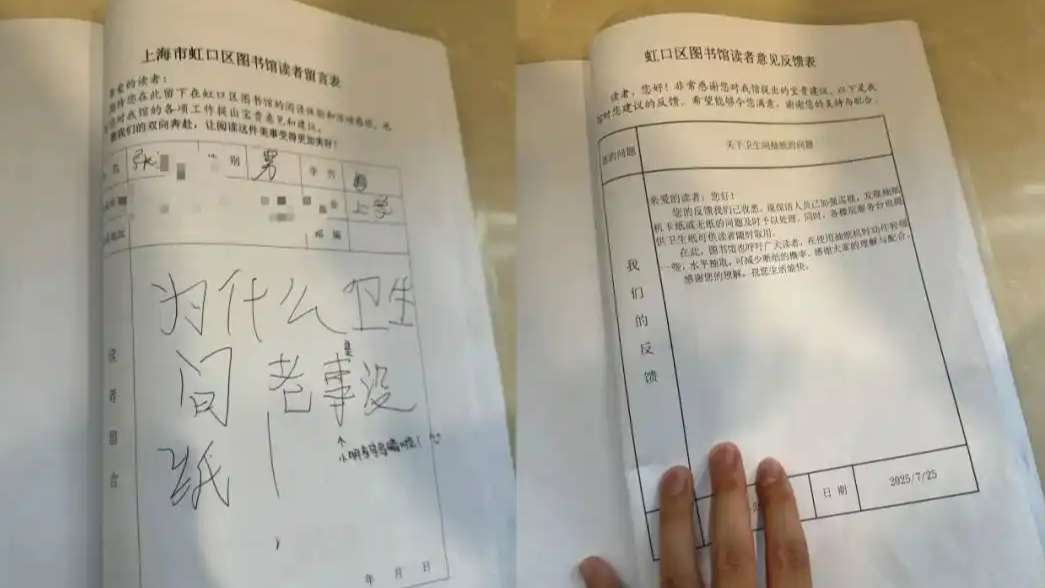 上海市虹口区图书馆读者留言表
亲爱的读者:
期待您在此留下在虹口区图书馆的阅读体验和活动感悟,也
您对我馆的各项工作提出宝贵意见和建议。
我们的双向奔赴,让阅读这件美事变得更加美好!
名 张 别 男 年龄
上学
邮编
读者留言
为什么卫生
间老事没
是
纸
小明
年 月 日
虹口区图书馆读者意见反馈表
读者:您好!非常感谢您对我馆提出的宝贵建议。以下是我
馆对您建议的反馈,希望能够令您满意,谢谢您的支持与配合。
您的问题 关于卫生间抽纸的问题
我们的反馈
亲爱的读者:您好!
您的反馈我们已收悉。现保洁人员已加强巡视,发现抽纸
机卡纸或无纸的问题及时予以处理,同时,各楼层服务台也提
供卫生纸可供读者随时取用。
在此,图书馆也呼吁广大读者,在使用抽纸机时动作轻缓
一些,水平抽取,可减少断纸的概率。感谢大家的理解与配合。
感谢您的理解。祝您生活愉快。
日期 2025/7/25